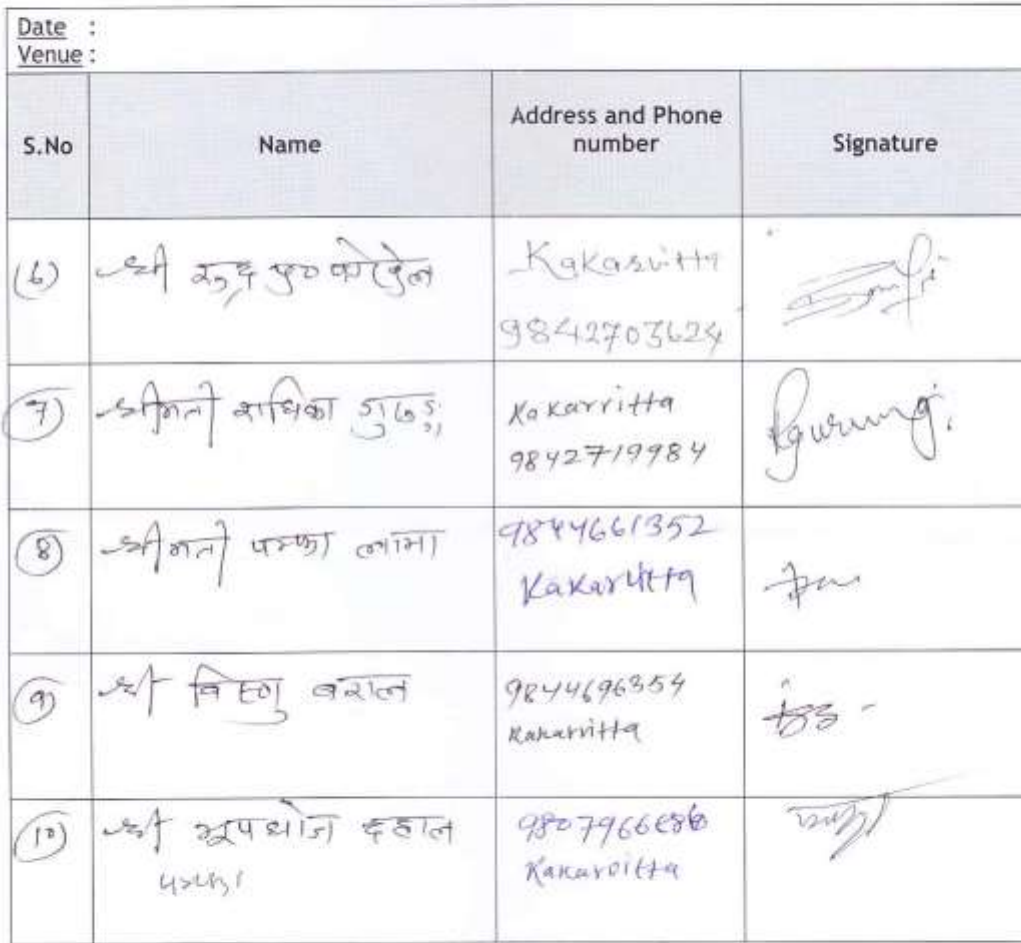 Date :
Venue :
S.No Name Address and Phone number Signature
(6) श्री रुद्र प्र० पोखरेल Kakarvitta
9842703624
7) श्रीमती राधिका गुरुङ Kakarvitta
9842719984 Rgurung.
8) श्रीमती पम्फा लामा 9844661352
Kakarvitta
9) श्री विष्णु बराल 9844696354
Kakarvitta
10) श्री भूपध्वोज दहाल
Kakarvitta
पम्फा